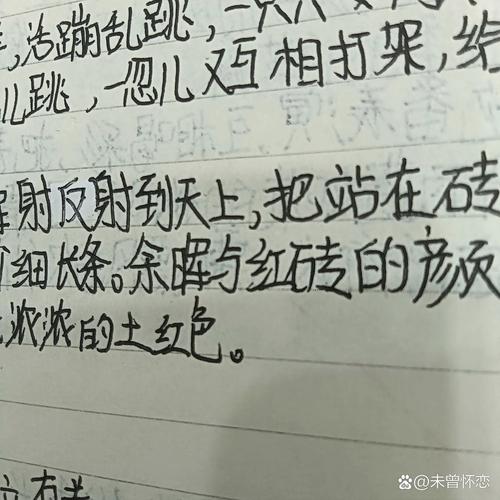 ,活蹦乱跳,一只
儿跳,一忽儿又互相打架,给
射反射到天上,把站在砖
细长条。余晖与红砖的彦页
浓浓的土红色。
@未曾怀恋